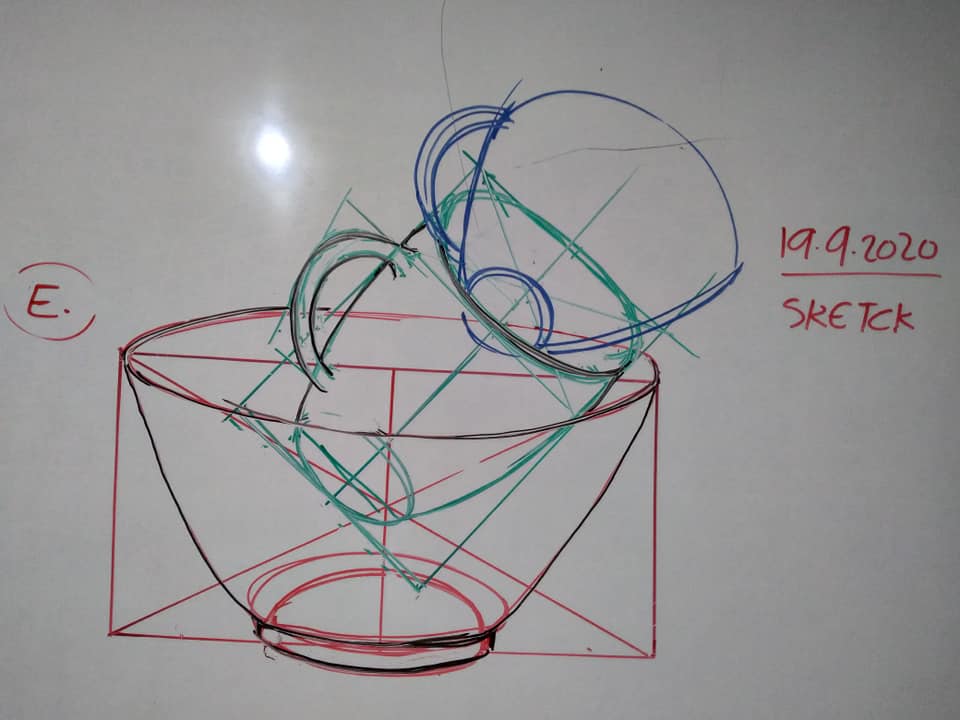 E.
19.9.2020
SKETCK